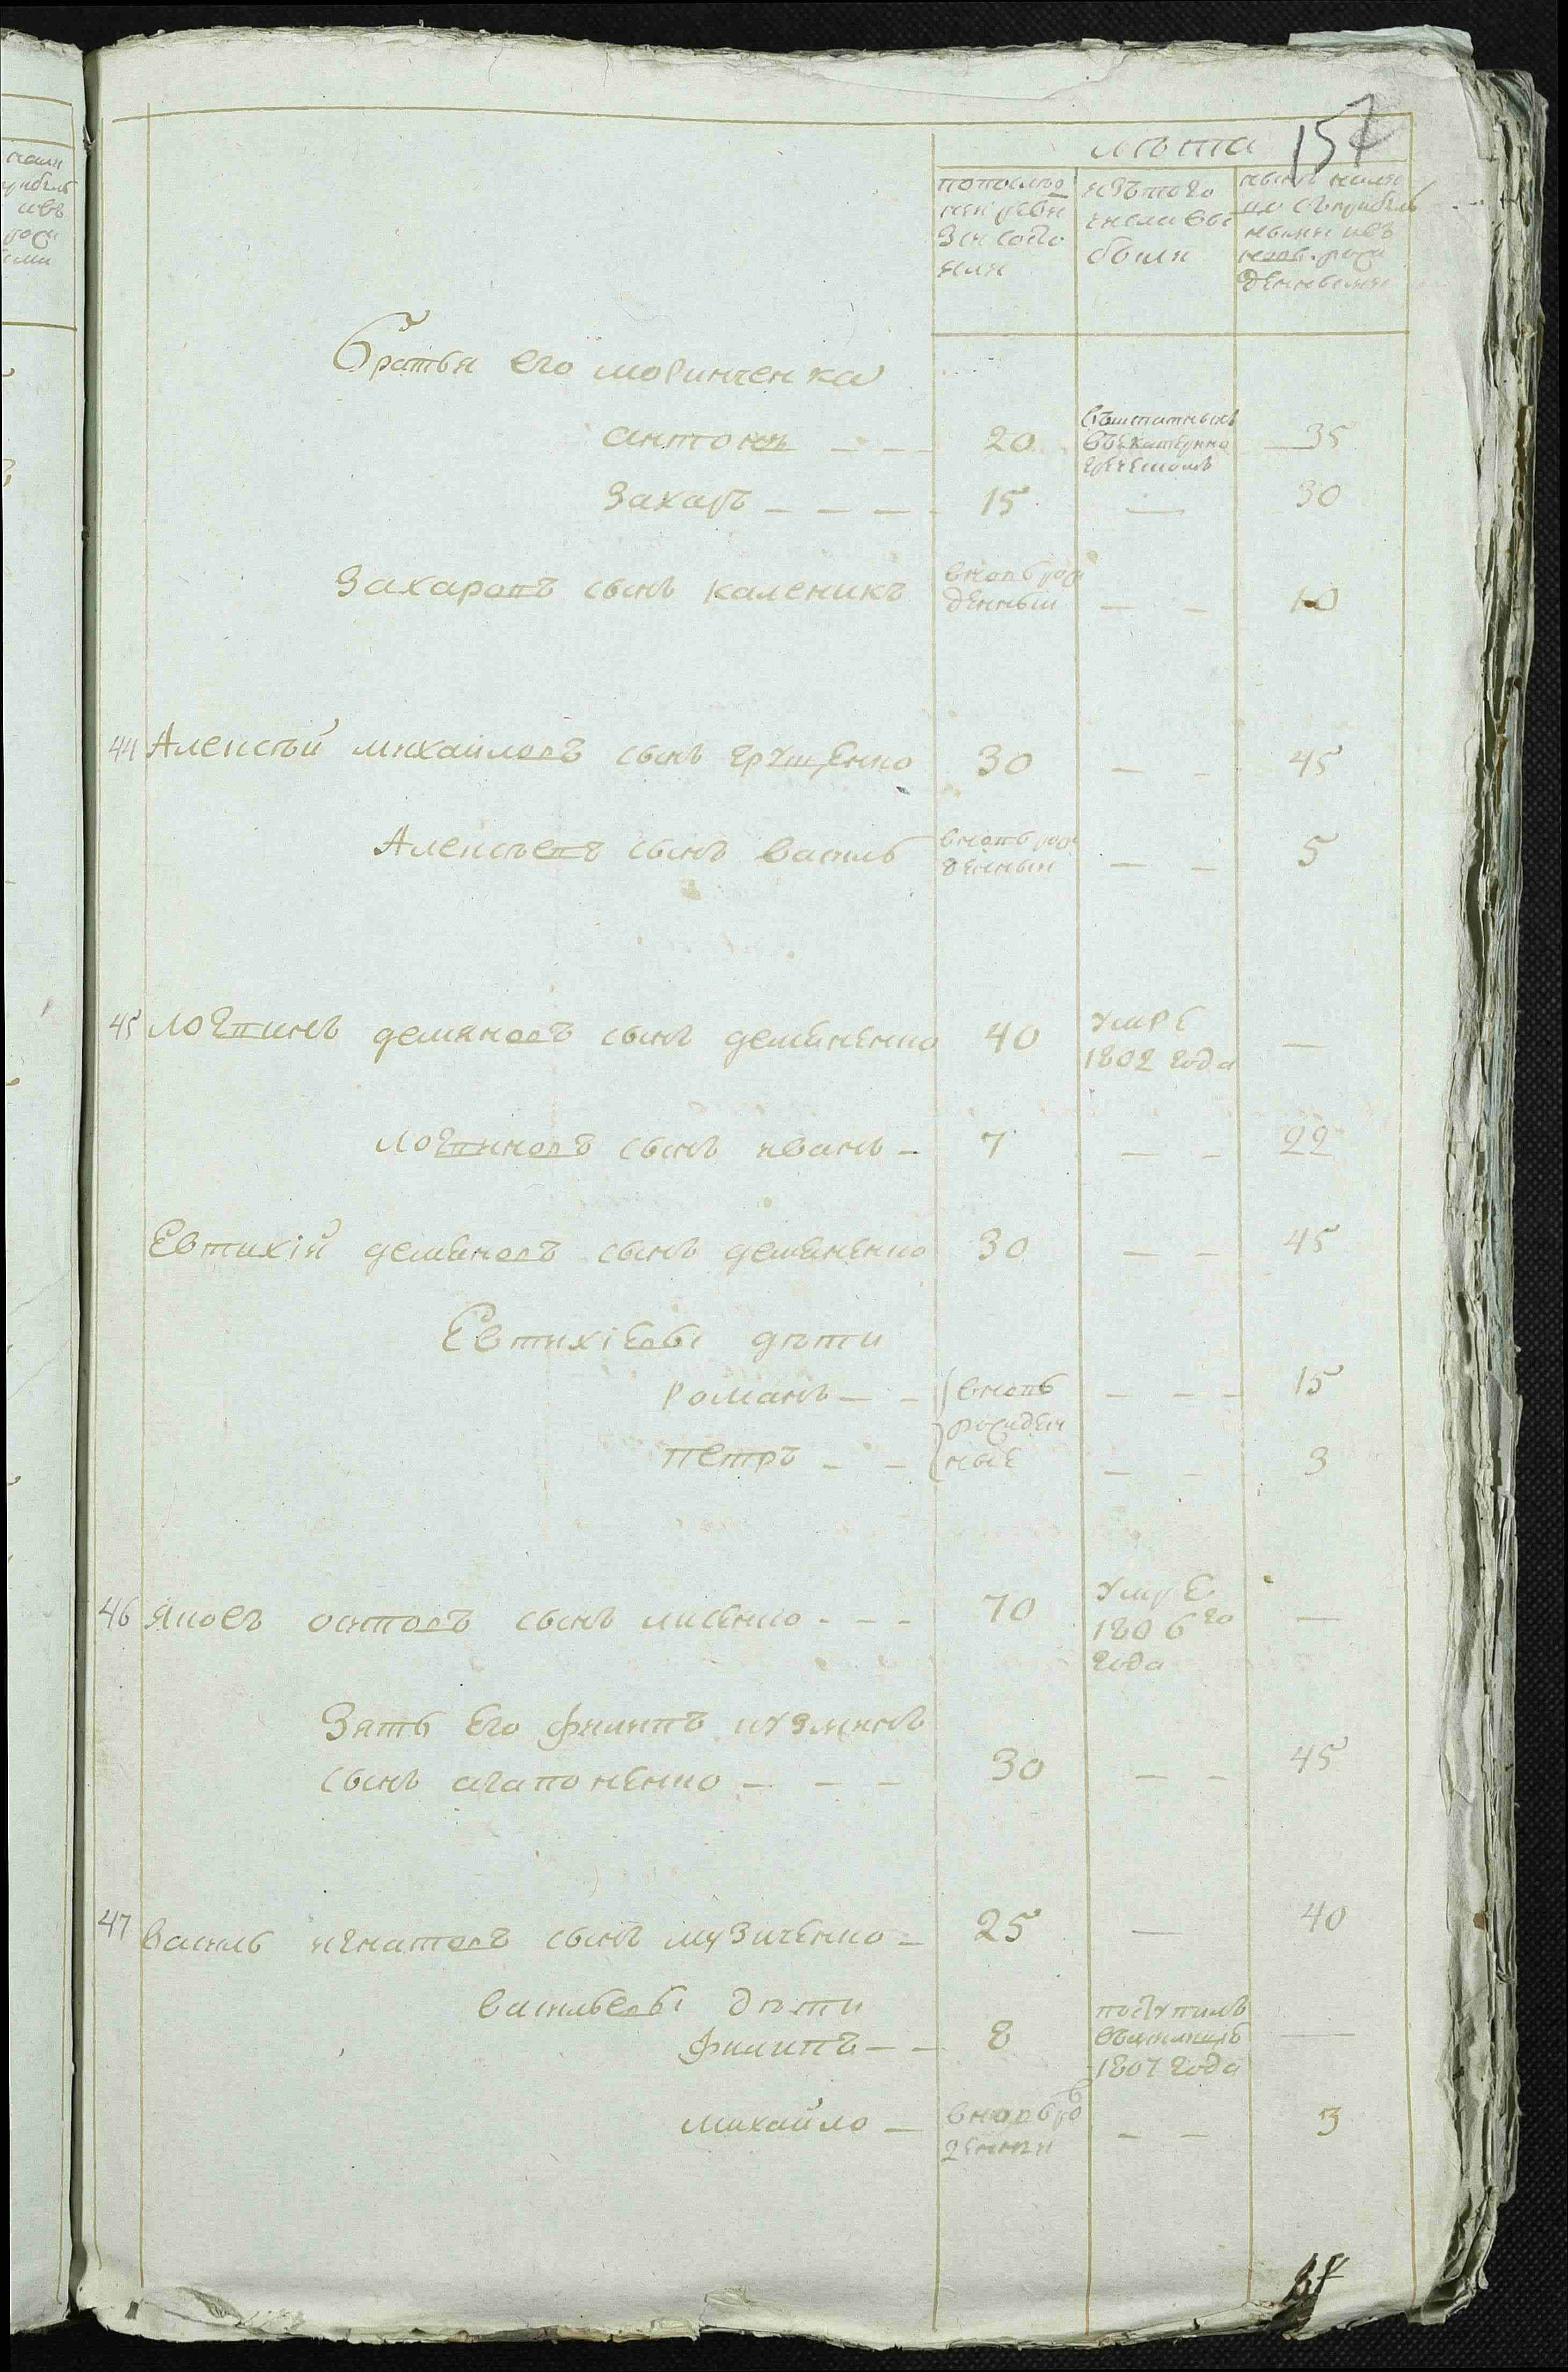 157
лѣта
пополѣд
ней реви
зіи состо
яли
изъ того
числа вы
были
нынѣ нали
цо съ прибыль
ными и въ
новѣ рож
денными
Братья его моринченка
антонъ - - - 20 въ Екатерино 35
захаръ - - - - 15 — 30
Захаровъ сынъ каленикъ вновь рож
денныи - - 10
44 Алексѣй михайловъ сынъ грущенко 30 - - 45
Алексѣевъ сынъ василь вновь рож
денныи - - 5
45 логвинъ демяновъ сынъ демяненко 40 умре
1802 года —
логвиновъ сынъ иванъ - 7 - - 22
Евтихій демяновъ сынъ демяненко 30 - - 45
Евтихіевы дѣти
романъ - - вновь - - - 15
рожден
петръ - - ные - - 3
46 яковъ остповъ сынъ лисенко - - - 70 умре
1806го
года —
Зять его филипъ кузминъ
сынъ агапоненко - - - 30 - - 45
47 василь игнатовъ сынъ музиченко - 25 — 40
васильевы дѣти
филипъ - - 8 поступилъ
1807 года —
михайло - вновь ро
денни - - 3